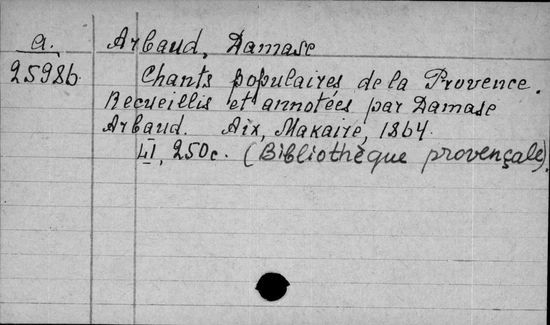 a. Arbaud, Damase
2598b. Chants populaires de la Provence.
Recueillis et annotées par Damase
Arbaud. Aix, Makaire, 1864.
LI, 250c. (Bibliothèque provençale).